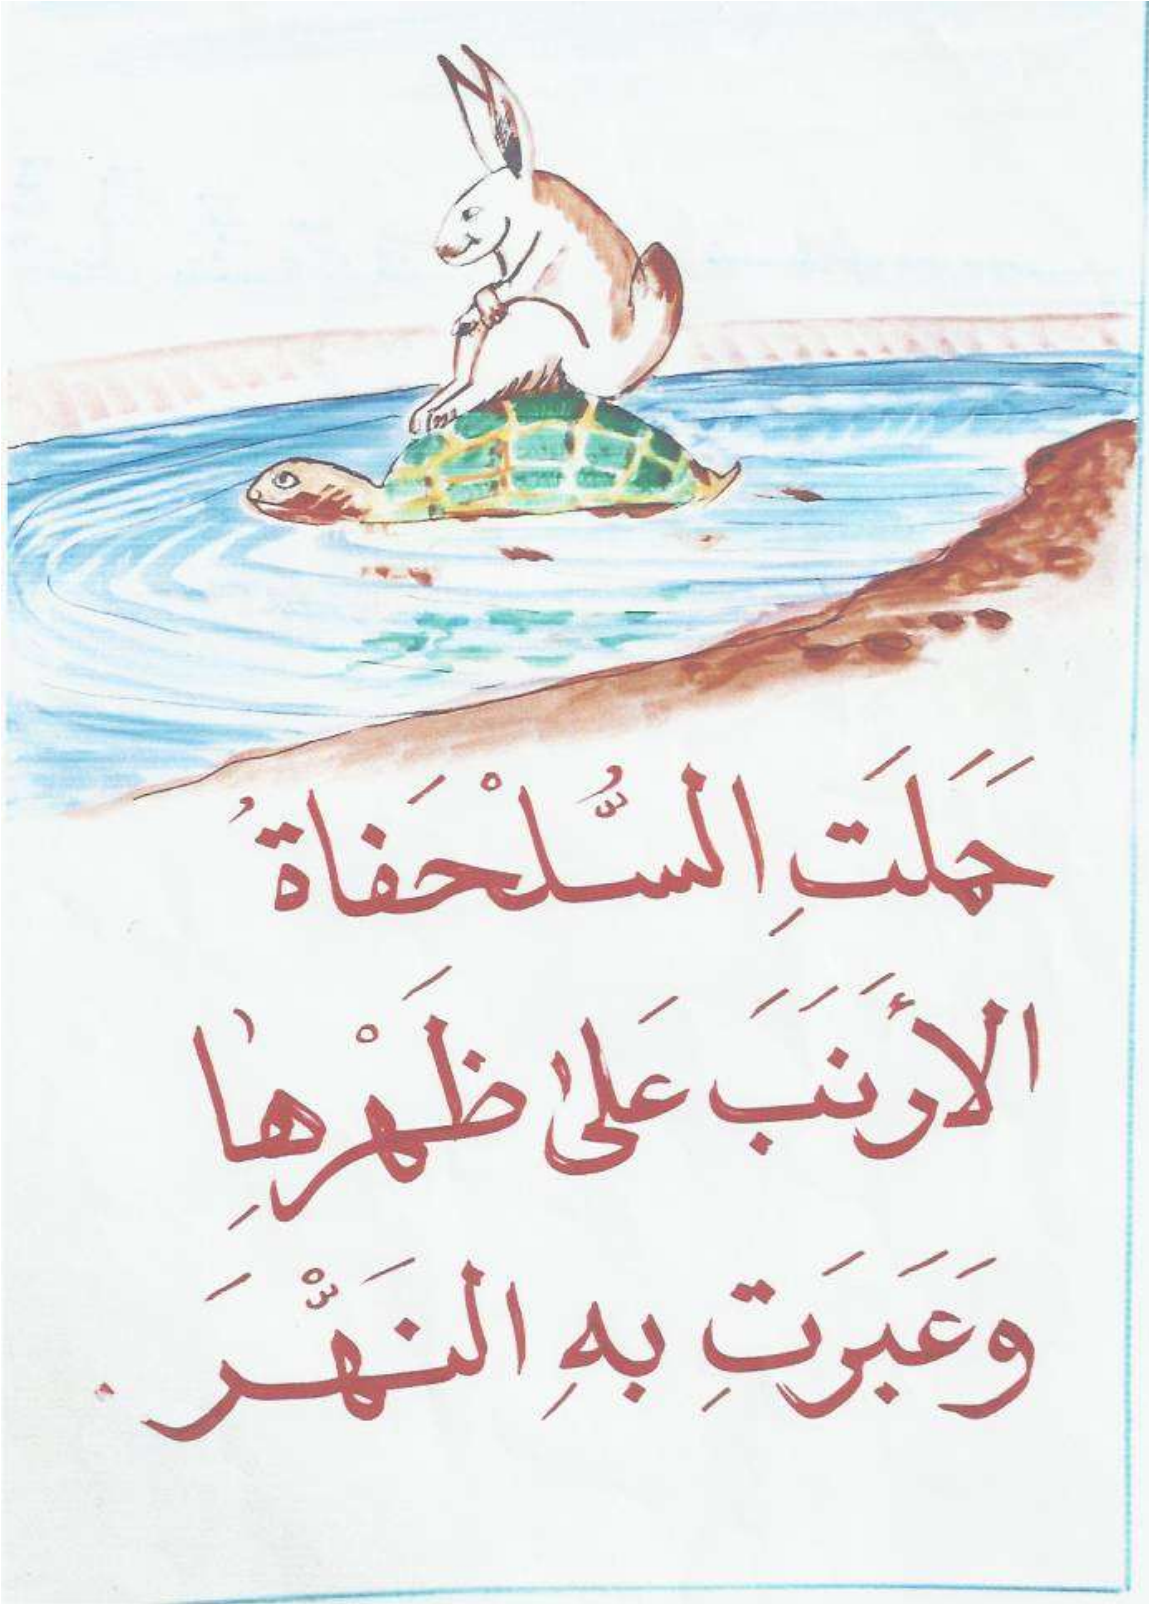 حَمَلَتِ السُّلْحَفاةُ
الأَرنَبَ عَلىٰ ظَهْرِها
وَعَبَرَتِ بهِ النَهَّْرَ.